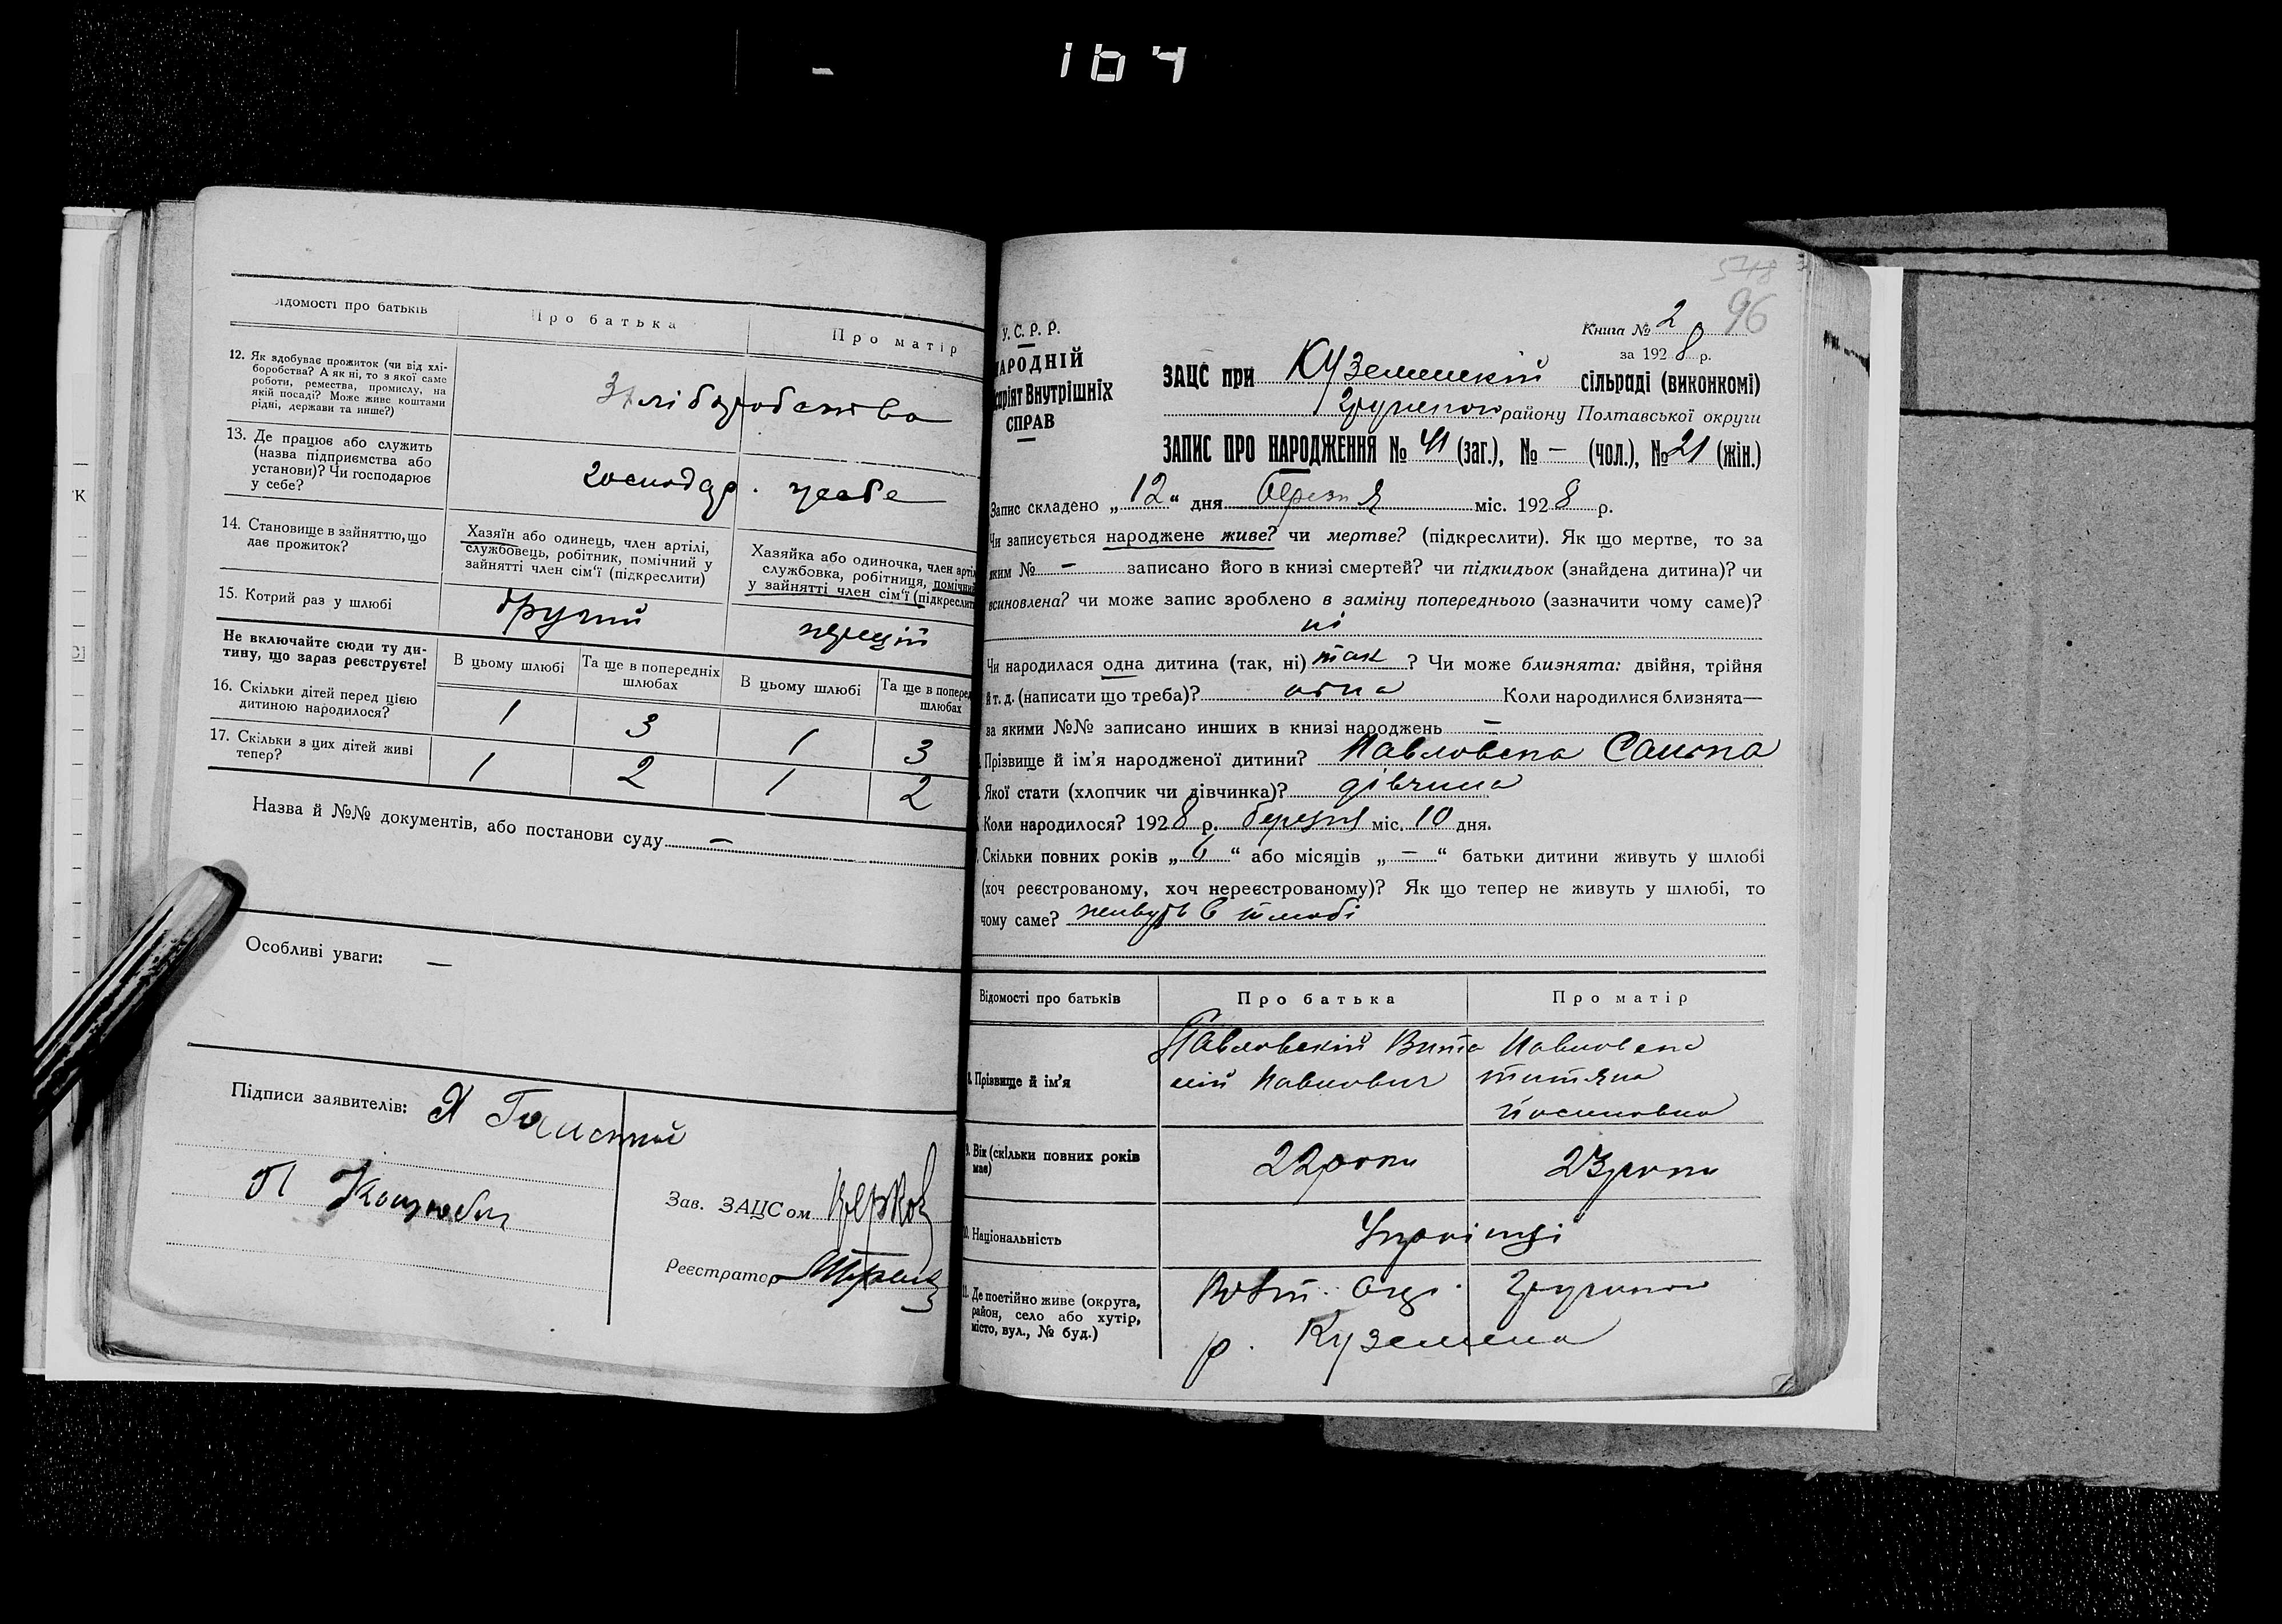 164
Відомості про батьків
Про батька
Про матір
12. Як здобуває прожиток (чи від хлі-
боробства? А як ні, то з якої саме
роботи, ремества, промислу, на
якій посаді? Може живе коштами
рідні, держави та инше?)
З хліборобства
13. Де працює або служить
(назва підприємства або
установи)? Чи господарює
у себе?
господар. у себе
14. Становище в зайняттю, що
дає прожиток?
Хазяїн або одинець, член артілі,
службовець, робітник, помічний у
зайнятті член сім'ї (підкреслити)
Хазяйка або одиночка, член артілі
службовка, робітниця, помічний
у зайнятті член сім'ї (підкреслити
15. Котрий раз у шлюбі
другий
перший
Не включайте сюди ту ди-
тину, що зараз реєструєте!
В цьому шлюбі
Та ще в попередніх
шлюбах
В цьому шлюбі
Та ще в поперед
шлюбах
16. Скільки дітей перед цією
дитиною народилося?
1 3 1 3
17. Скільки з цих дітей живі
тепер?
1 2 1 2
Назва й №№ документів, або постанови суду —
Особливі уваги: —
Підписи заявителів:
Зав. ЗАЦСом
Реєстратор
548
96
У. С. Р. Р.
НАРОДНІЙ
комісаріят Внутрішніх
СПРАВ
Книга № 2
за 1928 р.
ЗАЦС при Куземинскій сільраді (виконкомі)
Грунском району Полтавської округи
ЗАПИС ПРО НАРОДЖЕННЯ № 41 (заг.), № — (чол.), № 21 (жін.)
Запис складено „12" дня березня міс. 1928 р.
Чи записується народжене живе? чи мертве? (підкреслити). Як що мертве, то за
яким № — записано його в книзі смертей? чи підкидьок (знайдена дитина)? чи
всиновлена? чи може запис зроблено в заміну попереднього (зазначити чому саме)?
ні
Чи народилася одна дитина (так, ні) так ? Чи може близнята: двійня, трійня
й т. д. (написати що треба)? одна Коли народилися близнята—
за якими №№ записано инших в книзі народжень —
Прізвище й ім'я народженої дитини? Павловска
Якої стати (хлопчик чи дівчинка)? дівчина
Коли народилося? 1928 р. березня міс. 10 дня.
Скільки повних років „6" або місяців „—" батьки дитини живуть у шлюбі
(хоч реєстрованому, хоч нереєстрованому)? Як що тепер не живуть у шлюбі, то
чому саме? живуть в шлюбі
Відомості про батьків
Про батька
Про матір
8. Прізвище й ім'я
Павловскій Вита
лій Павлович
Павловска
татяна
йосиповна
9. Вік (скільки повних років
має)
22 роки
23 роки
10. Національність
Українці
11. Де постійно живе (округа,
район, село або хутір,
місто, вул., № буд.)
Полт. Окр. Грунском
р. Куземена